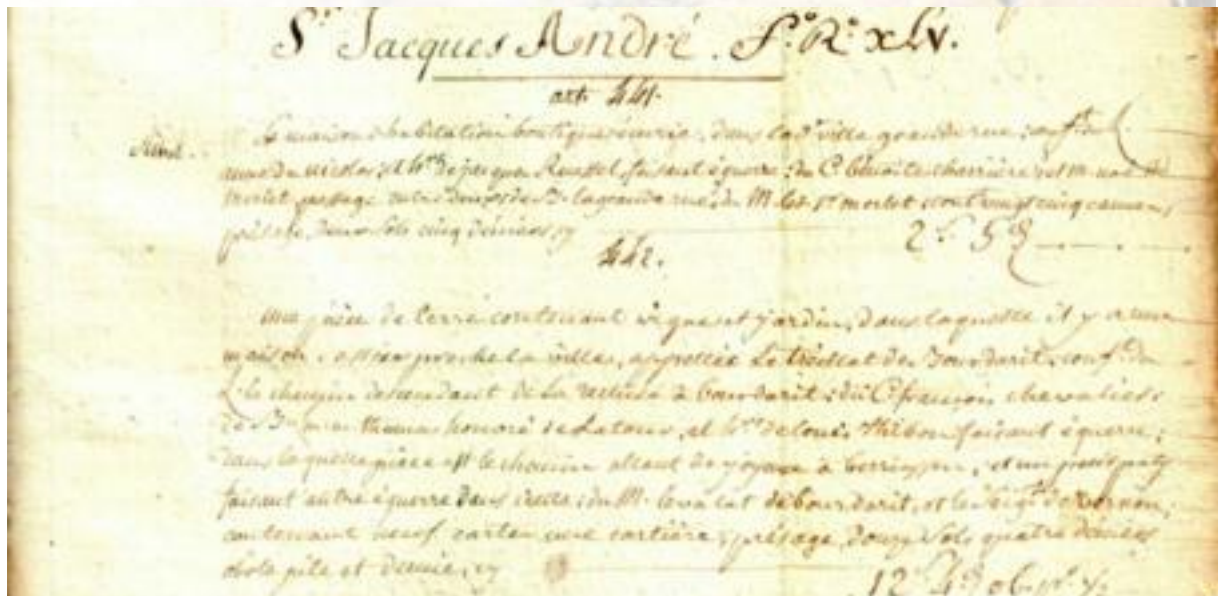 Sr. Jacques André. fo. Ro. xlv.
art. 441.
Sa maison d'habitation boutique écurie, dans la de. ville grande rue; conft. du
Nicolas, et hrs. de jacques Roussel, faisant équerre; du C. benoite charrière
morlet passage entre deux; de B. la grande rue, du M. led. sr. morlet contt. vingt cinq cannes
présage, deux sols cinq deniers, cy 2s. 5d
442.
une pièce de terre contenant vigne et jardin, dans laquelle il y a une
maison, assise proche la ville, appellée Le treillat de Bourdarit, conft. du
L. le chemin descendant de la recluse à bourdarit; du C. françois chevalier;
de B. thomas honoré de Latour, et hrs. de Louis Thibon faisant équerre;
dans laquelle pièce est le chemin allant de joyeuse à berrias, et un petit
faisant autre équerre dans icelle; du M. le valat de bourdarit, et le seigr. de vernon;
contenant neuf cartes une cartière; présage, douze sols quatre deniers
obole pite et demie, cy 12s. 4d. ob. pte.